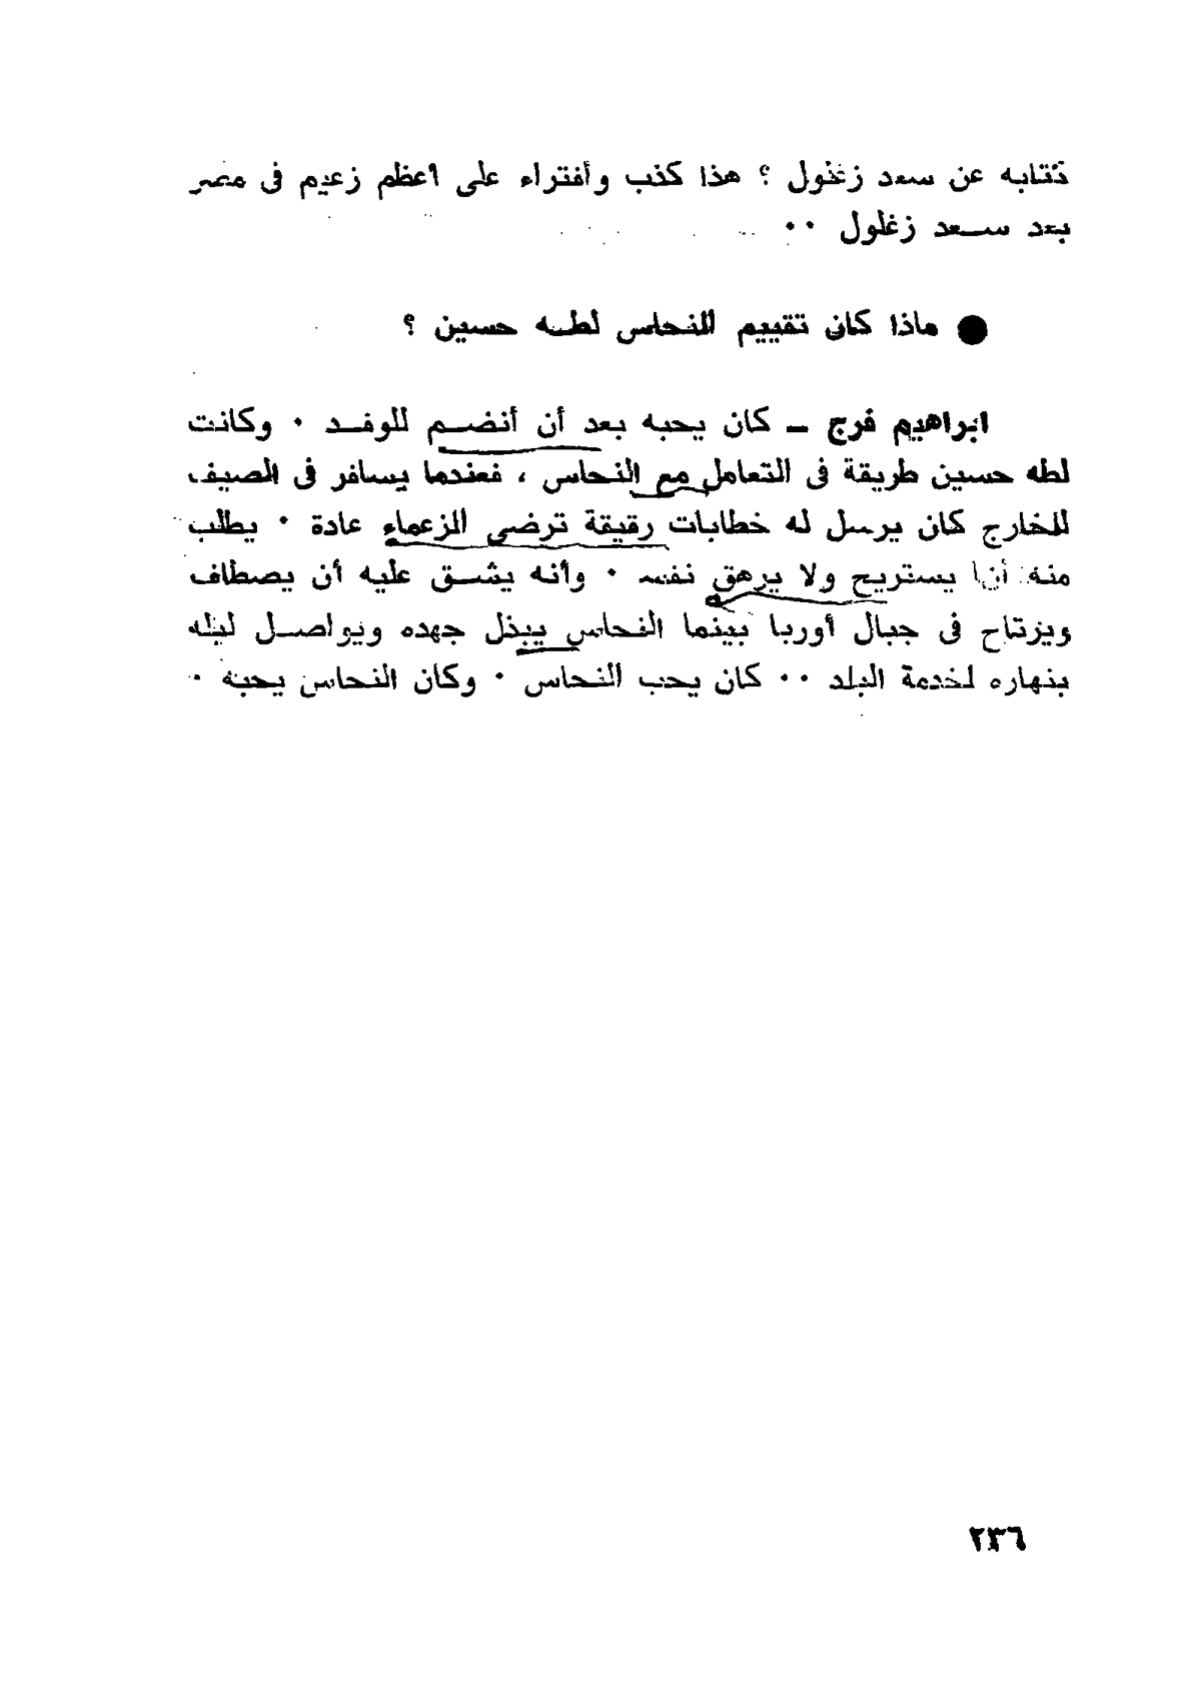 كتابه عن سعد زغلول ؟ هذا كذب وأفتراء على أعظم زعيم فى مصر
بعد ســعد زغلول ٠٠
● ماذا كان تقييم النحاس لطــه حسين ؟
ابراهيم فرج ــ كان يحبه بعد أن أنضــم للوفــد ٠ وكانت
لطه حسين طريقة فى التعامل مع النحاس ، فعندما يسافر فى الصيف
للخارج كان يرسل له خطابات رقيقة ترضى الزعماء عادة ٠ يطلب
منه أن يستريح ولا يرهق نفسه ٠ وأنه يشــق عليه أن يصطاف
ويرتاح فى جبال أوربا بينما النحاس يبذل جهده ويواصــل ليله
بنهاره لخدمة البلد ٠٠ كان يحب النحاس ٠ وكان النحاس يحبه ٠
٢٣٦